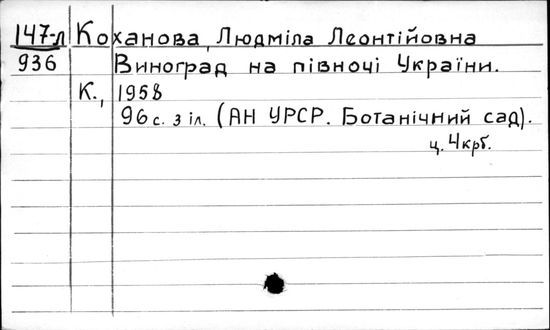 147-л Коханова, Людміла Леонтійовна
936 Виноград на півночі України.
К., 1958
96 с. з іл. (АН УРСР. Ботанічний сад).
ц. 4 крб.